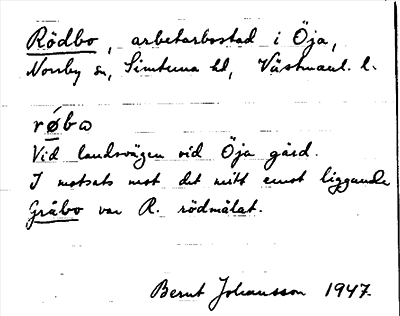 Rödbo, arbetarbostad i Öja,
Norrby sn, Simtuna hd, Västmanl. l.
rǿbω
Vid landsvägen vid Öja gård.
I motsats mot det mitt emot liggande
Gråbo var R. rödmålat.
Bernt Johansson 1947.